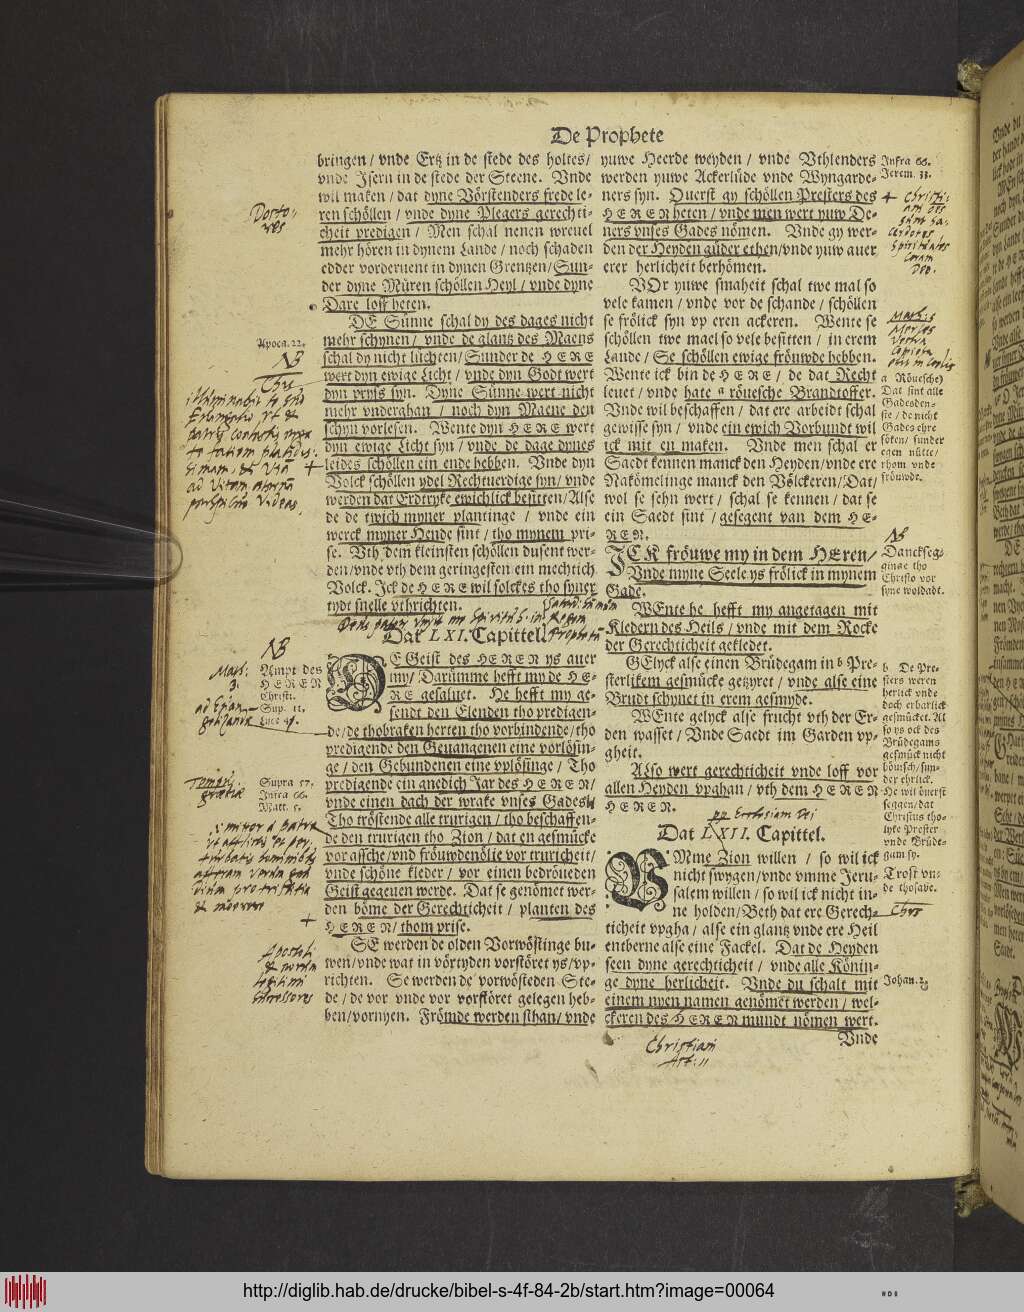 De Prophete
bringen / vnde Ertz in de stede des holtes /
vnde Isern in de stede der Steene. Vnde
wil maken / dat dyne Vörstenders frede le-
ren schöllen / vnde dyne Plegers gerechti-
cheit predigen / Men schal nenen wreuel
mehr hören in dynem Lande / noch schaden
edder vorderuent in dynen Grentzen / Sun-
der dyne Müren schöllen Heyl / vnde dyne
Dare loff heten.
DE Sünne schal dy des dages nicht
mehr schynen / vnde de glantz des Maens
schal dy nicht lüchten / Sunder de HERE
wert dyn ewige Licht / vnde dyn Godt wert
dyn pryss syn. Dyne Sünne wert nicht
mehr vnderghan / noch dyn Maene den
schyn vorlesen. Wente dyn HERE wert
dyn ewige Licht syn / vnde de dage dynes
leides schöllen ein ende hebben. Vnde dyn
Volck schöllen ydel Rechtuerdige syn / vnde
werden dat Erdtryke ewichlick besitten / Alse
de de twich myner plantinge / vnde ein
werck myner Hende sint / tho mynem pri-
se. Vth dem kleinsten schöllen dusent wer-
den / vnde vth dem geringesten ein mechtich
Volck. Ick de HERE wil solckes tho syner
tydt snelle vthrichten.
Dat LXI. Capittel.
DE Geist des HEREN ys auer
my / Darümme hefft my de HE-
RE gesaluet. He hefft my ge-
sendt den Elenden tho predigen-
de / de thobraken herten tho vorbindende / tho
predigende den Geuangenen eine vorlösin-
ge / den Gebundenen eine vplösinge / Tho
predigende ein gnedich Jar des HEREN /
vnde einen dach der wrake vnses Gades /
Tho tröstende alle trurigen / tho beschaffen-
de den trurigen tho Zion / dat en gesmücke
vor assche / vnd fröuwdenölie vor truricheit /
vnde schöne kleder / vor einen bedröueden
Geist gegeuen werde. Dat se genömet wer-
den böme der Gerechticheit / planten des
HEREN / thom prise.
SE werden de olden Vorwöstinge bu-
wen / vnde wat in vörtyden vorstöret ys / vp-
richten. Se werden de vorwösteden Ste-
de / de vor vnde vor vorstöret gelegen heb-
ben / vornyen. Frömde werden sthan / vnde
yuwe Heerde weyden / vnde Vthlenders
werden yuwe Ackerlüde vnde Wyngarde-
ners syn. Ouerst gy schöllen Presters des
HEREN heten / vnde men wert yuw De-
ners vnses Gades nömen. Vnde gy wer-
den der Heyden güder ethen / vnde yuw auer
erer herlicheit berhömen.
VOr yuwe smaheit schal twe mal so
vele kamen / vnde vor de schande / schöllen
se frölick syn vp eren ackeren. Wente se
schöllen twe mael so vele besitten / in erem
Lande / Se schöllen ewige fröuwde hebben.
Wente ick bin de HERE / de dat Recht
leuet / vnde hate a röuesche Brandtoffer.
Vnde wil beschaffen / dat ere arbeidt schal
gewisse syn / vnde ein ewich Vorbundt wil
ick mit en maken. Vnde men schal er
Saedt kennen manck den Heyden / vnde ere
Nakömelinge manck den Völckeren / Dat /
wol se sehn wert / schal se kennen / dat se
ein Saedt sint / gesegent van dem HE-
REN.
ICK fröuwe my in dem HEren /
Vnde myne Seele ys frölick in mynem
Gade.
WEnte he hefft my angetagen mit
Kledern des Heils / vnde mit dem Rocke
der Gerechticheit gekledet.
GElyck alse einen Brüdegam in b Pre-
sterlikem gesmücke getzyret / vnde alse eine
Brudt schynet in erem gesmyde.
WEnte gelyck alse frucht vth der Er-
den wasset / Vnde Saedt im Garden vp-
gheit.
Also wert gerechticheit vnde loff vor
allen Heyden vpghan / vth dem HEREN
HEREN.
Dat LXII. Capittel.
VMme Zion willen / so wil ick
nicht swygen / vnde vmme Jeru-
salem willen / so wil ick nicht in-
ne holden / Beth dat ere Gerech-
ticheit vpgha / alse ein glantz vnde ere Heil
entberne alse eine Fackel. Dat de Heyden
seen dyne gerechticheit / vnde alle Könin-
ge dyne herlicheit. Vnde du schalt mit
einem nyen namen genömet werden / wel-
ckeren des HEREN mundt nömen wert.
Vnde
Apoca. 22.
NB
NB
Ampt des
HEREN
Christi.
Sup. 11.
Luce 4.
Supra 57.
Infra 66.
Matt. 5.
Infra 66.
Jerem. 33.
a Röuesche)
Dat sint alle
Gadesden-
ste / de nicht
Gades ehre
söken / sunder
egen nütte /
rhom vnde
fröuwde.
NB
Dancksegginge tho
Christo vor
syne woldadt.
b De Pre-
sters weren
herlick vnde
doch erbarlick
gesmücket. Al
so ys ock des
Brüdegams
gesmück nicht
böuisch / sun-
der ehrlick.
He wil öuerst
seggen / dat
Christus tho-
lyke Prester
vnde Brüde-
gam sy.
Trost vn-
de thosage.
Johan. 2.
Christiani
Act: 11
http://diglib.hab.de/drucke/bibel-s-4f-84-2b/start.htm?image=00064